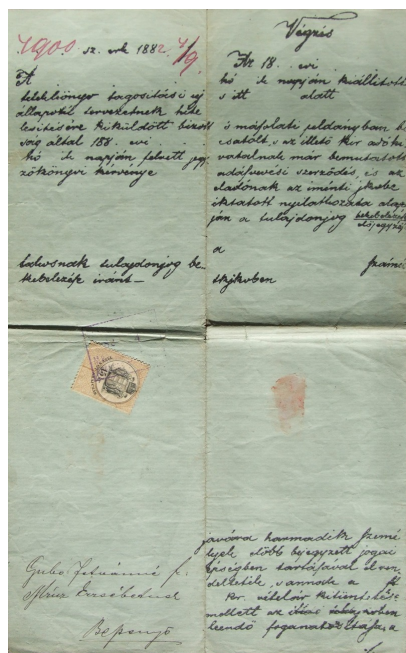 4900 sz. erk 1882 4/9
A
telekkönyv tagosítási új
állapotú tervezetnek hite
lesítésére kiküldött bizott
ság által 188 . evi
hó ik napján felvett jegy
zőkönyvi kérvénye
lakosnak tulajdonjog be
kebelezése iránt —
Gubo Istvánné sz.
Erzsébetnek
Végzés
Az 18 . . evi
hó ik napján kiállított
s itt alatt
is másolati példányban
csatolt, s az illető kir adóhi
vatalnak már bemutatott
adásvevési szerződés, és az
eladónak az iménti jkvbe
iktatott nyilatkozata alap
ján a tulajdonjog bekebelezése
előjegyzése
a számú
tkjkvben
javára harmadik szemé
lyek előbb bejegyzett jogai
épségben tartásával elren
deltetik, s annak a
kr. vételár kitüntetése
mellett az
leendő foganatosítása, a